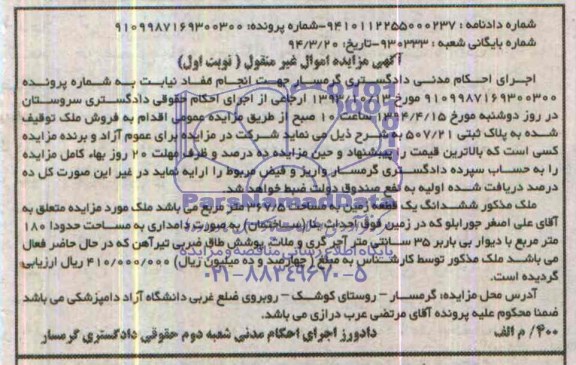 شماره دادنامه : ۹۴۱۰۱۱۲۲۵۵۰۰۰۲۳۷-شماره پرونده: ۹۱۰۹۹۸۷۱۶۹۳۰۰۳۰۰
شماره بایگانی شعبه : ۹۳۰۳۳۳-تاریخ: ۹۴/۳/۲۰
آگهی مزایده اموال غیر منقول ( نوبت اول)
اجرای احکام مدنی دادگستری گرمسار جهت انجام مفاد نیابت به شماره پرونده
۹۱۰۹۹۸۷۱۶۹۳۰۰۳۰۰ مورخ ارجاعی از اجرای احکام حقوقی دادگستری سروستان
در روز دوشنبه مورخ ۱۳۹۴/۴/۱۵ ساعت ۱۰ صبح از طریق مزایده عمومی اقدام به فروش ملک توقیف
شده به پلاک ثبتی ۵۰۷/۲۱ به شرح ذیل می نماید شرکت در مزایده برای عموم آزاد و برنده مزایده
کسی است که بالاترین قیمت را پیشنهاد و حین مزایده ده درصد و ظرف مهلت ۲۰ روز بهاء کامل مزایده
را به حساب سپرده دادگستری گرمسار واریز و فیش مربوط را ارایه نماید در غیر این صورت کل ده
درصد دریافت شده اولیه به نفع صندوق دولت ضبط خواهد شد.
ملک مذکور ششدانگ یک قطعه زمین به مساحت متر مربع می باشد ملک مورد مزایده متعلق به
آقای علی اصغر جورابلو که در زمین فوق احداث بنا (ساختمان) به صورت دامداری به مساحت حدودا ۱۸۰
متر مربع با دیوار بی باربر ۳۵ سانتی متر آجر گری و ملات پوشش طاق ضربی تیرآهن که در حال حاضر فعال
می باشد ملک مذکور توسط کارشناس به مبلغ ( چهارصد و ده میلیون ریال) ۴۱۰/۰۰۰/۰۰۰ ریال ارزیابی
گردیده است.
آدرس محل مزایده: گرمسار - روستای کوشک - روبروی ضلع غربی دانشگاه آزاد دامپزشکی می باشد
ضمنا محکوم علیه پرونده آقای مرتضی عرب درازی می باشد.
۴۰۰/ م الف دادورز اجرای احکام مدنی شعبه دوم حقوقی دادگستری گرمسار
ParsNamadData
پایگاه اطلاع رسانی مناقصه و مزایده
۰۲۱-۸۸۳۴۹۶۷۰-۵